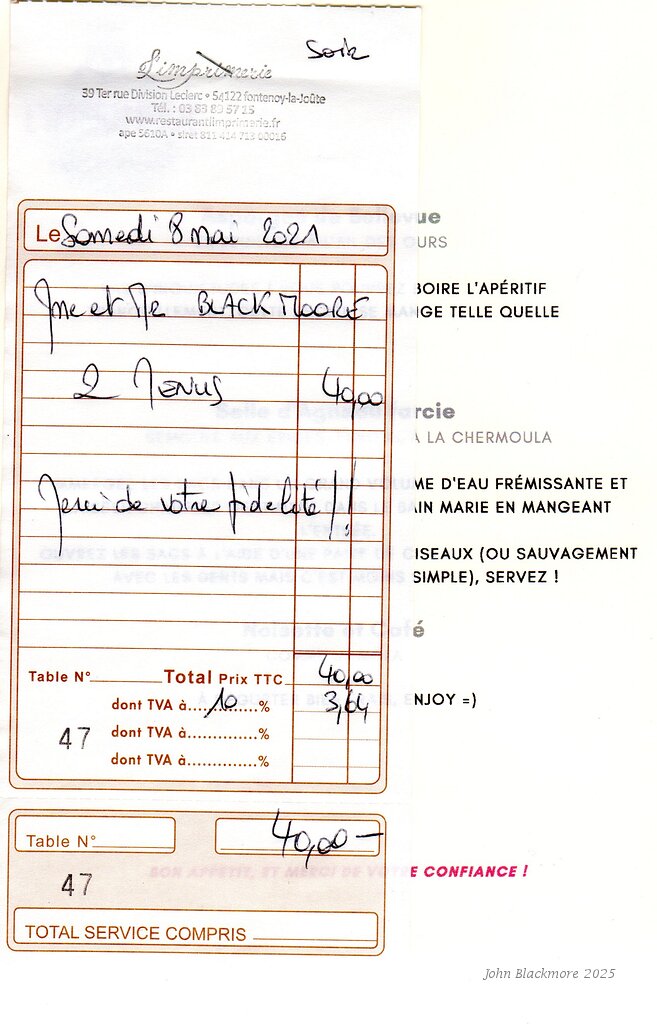 Soir
L'imprimerie
39 Ter rue Division Leclerc • 54122 fontenoy-la-Joûte
Tél. : 03 83 89 57 25
www.restaurantlimprimerie.fr
ape 5610A • siret 811 414 723 00016
Le Samedi 8 mai 2021
Mme et Mr BLACKMOORE
2 MENUS 40,00
Merci de votre fidelité !!
Table N° Total Prix TTC 40,00
dont TVA à 10 % 3,64
dont TVA à %
47
dont TVA à %
Table N° 40,00 –
47
TOTAL SERVICE COMPRIS
Bellevue
OURS
BOIRE L'APÉRITIF
NGE TELLE QUELLE
Selle d'Agneau Farcie
À LA CHERMOULA
ME D'EAU FRÉMISSANTE ET
BAIN MARIE EN MANGEANT
L'ENTRÉE.
OUVREZ LES SACS À L'AIDE D'UNE PAIRE DE CISEAUX (OU SAUVAGEMENT
AVEC LES DENTS MAIS C'EST MOINS SIMPLE), SERVEZ !
Noisette et Café
ENJOY =)
BON APPÉTIT, ET MERCI DE VOTRE CONFIANCE !
John Blackmore 2025